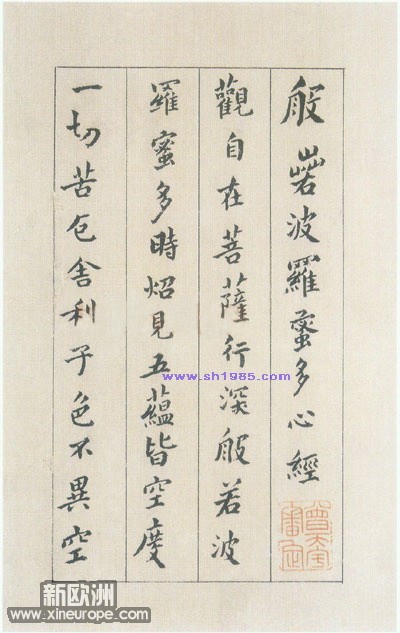 般若波羅蜜多心經
觀自在菩薩行深般若波
羅蜜多時炤見五蘊皆空度
一切苦厄舍利子色不異空
www.sh1985.com
新欧洲
www.xineurope.com